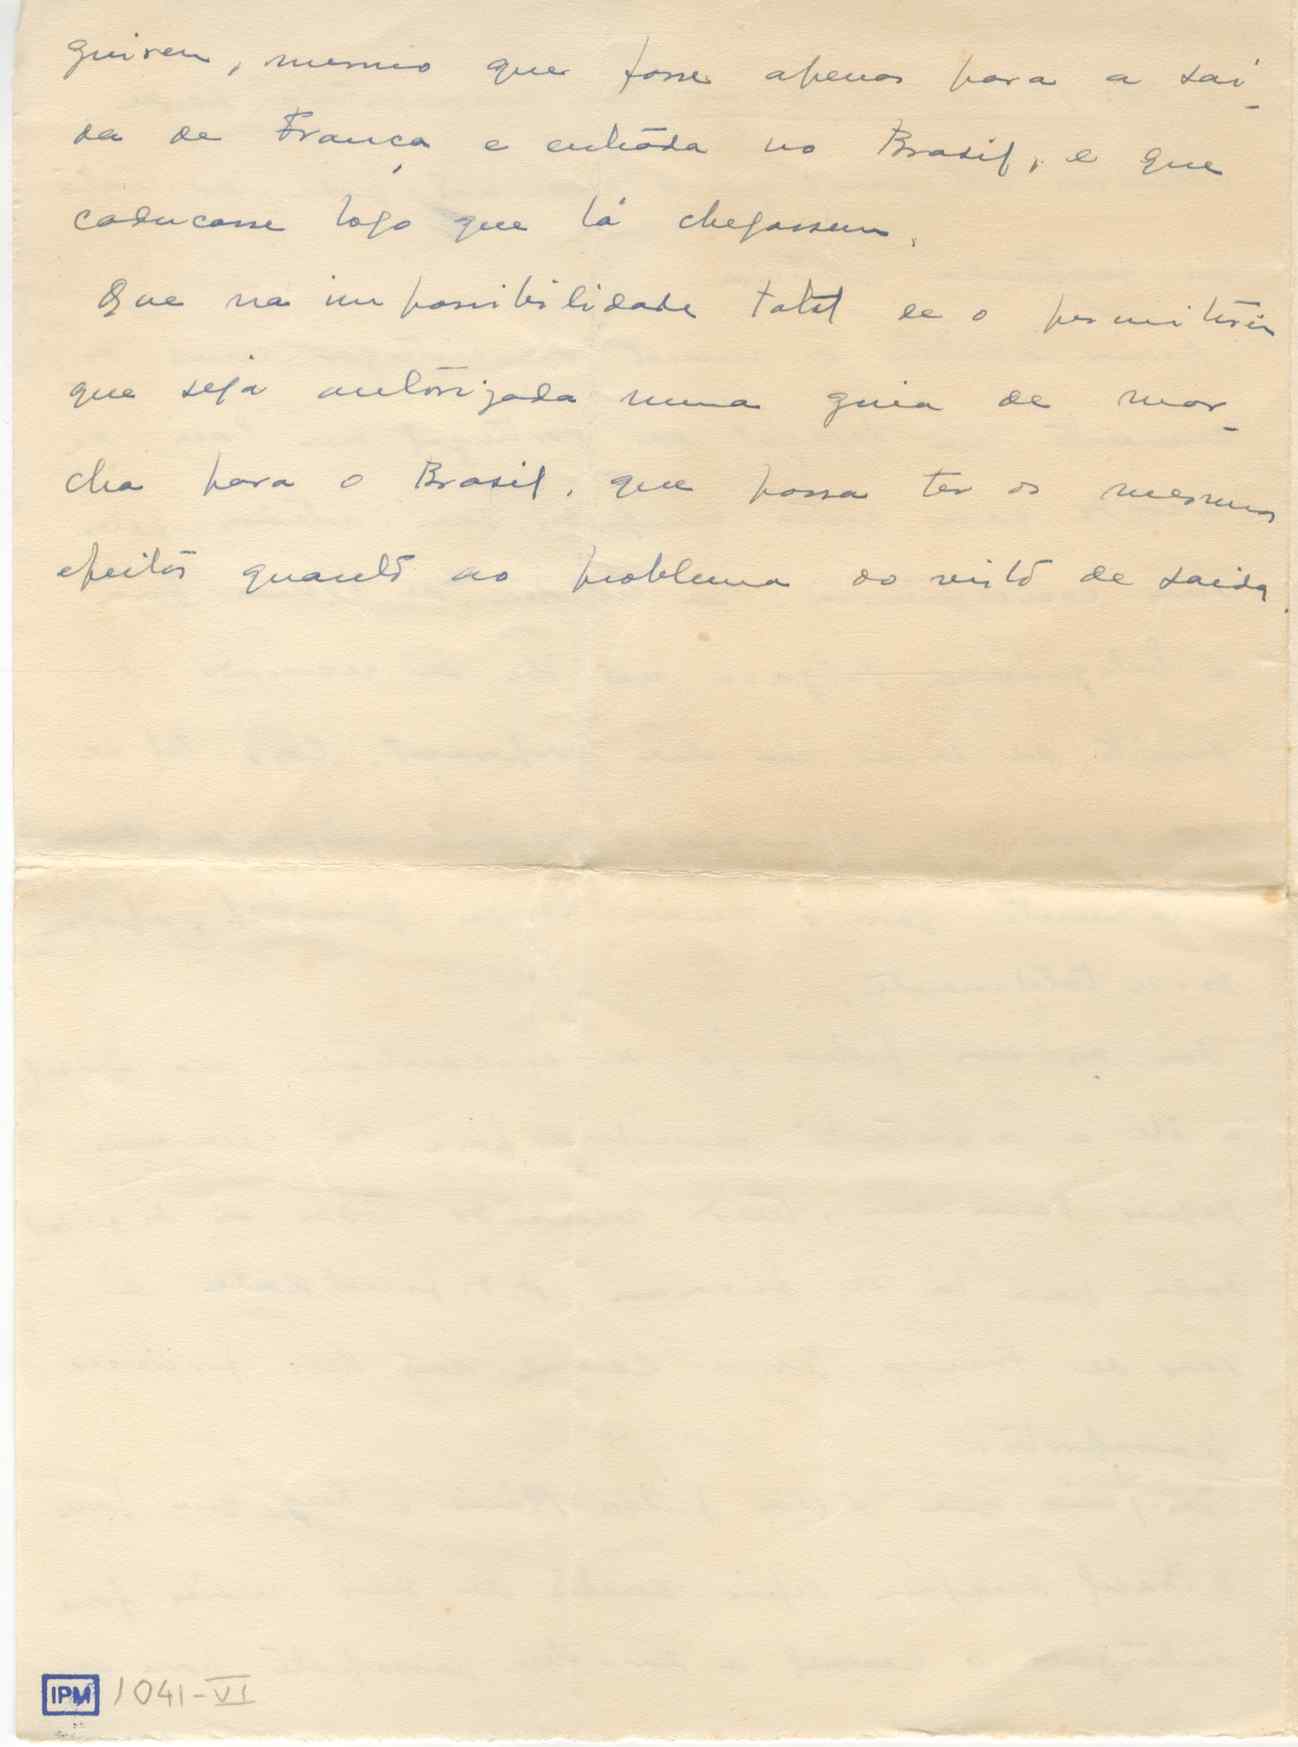 guirem, mesmo que fosse apenas para a sai-
da de França e entrada no Brasil, e que
caducasse logo que lá chegassem.
Que na impossibilidade total de o permitirem
que seja autorizada uma guia de mar-
cha para o Brasil, que possa ter os mesmos
efeitos quanto ao problema do visto de saida.
IPM 1041-VI